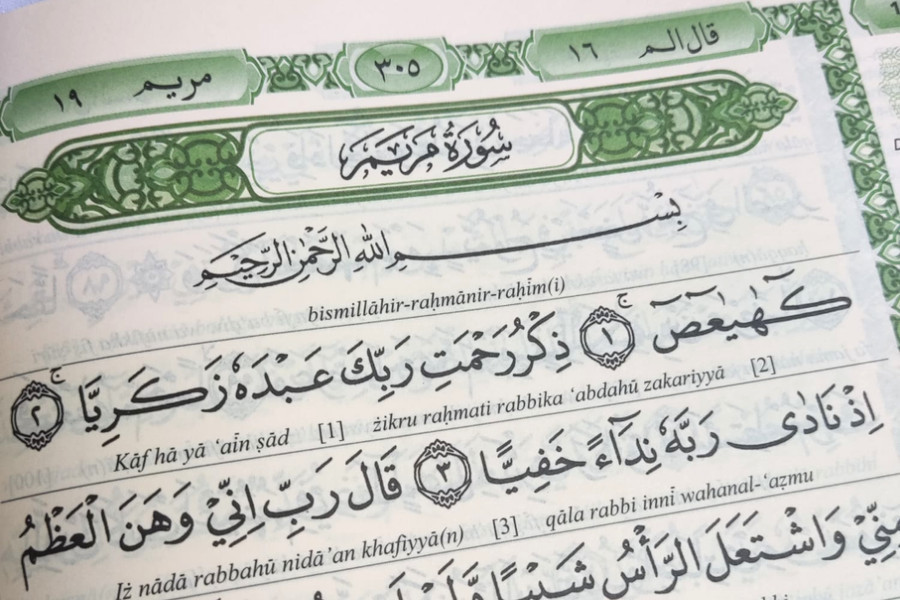 قال الم ١٦ ٣٠٥ مريم ١٩
سُورَةُ مَرْيَمَ
بِسْمِ اللّٰهِ الرَّحْمٰنِ الرَّحِيْمِ
bismillāhir-raḥmānir-raḥīm(i)
كۤهٰيٰعۤصۤ ۚ ١ ذِكْرُ رَحْمَتِ رَبِّكَ عَبْدَهٗ زَكَرِيَّا ۚ ٢
Kāf hā yā ‘aīn ṣād [1] żikru raḥmati rabbika ‘abdahū zakariyyā [2]
اِذْ نَادٰى رَبَّهٗ نِدَاۤءً خَفِيًّا ٣ قَالَ رَبِّ اِنِّيْ وَهَنَ الْعَظْمُ
Iż nādā rabbahū nidā’an khafiyyā(n) [3] qāla rabbi innī wahanal-‘aẓmu
مِنِّيْ وَاشْتَعَلَ الرَّأْسُ شَيْبًا